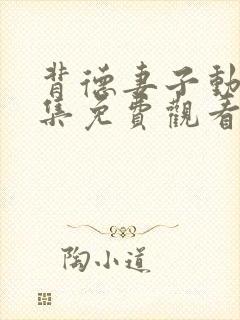 背德妻子動
集免費觀看
陶小道